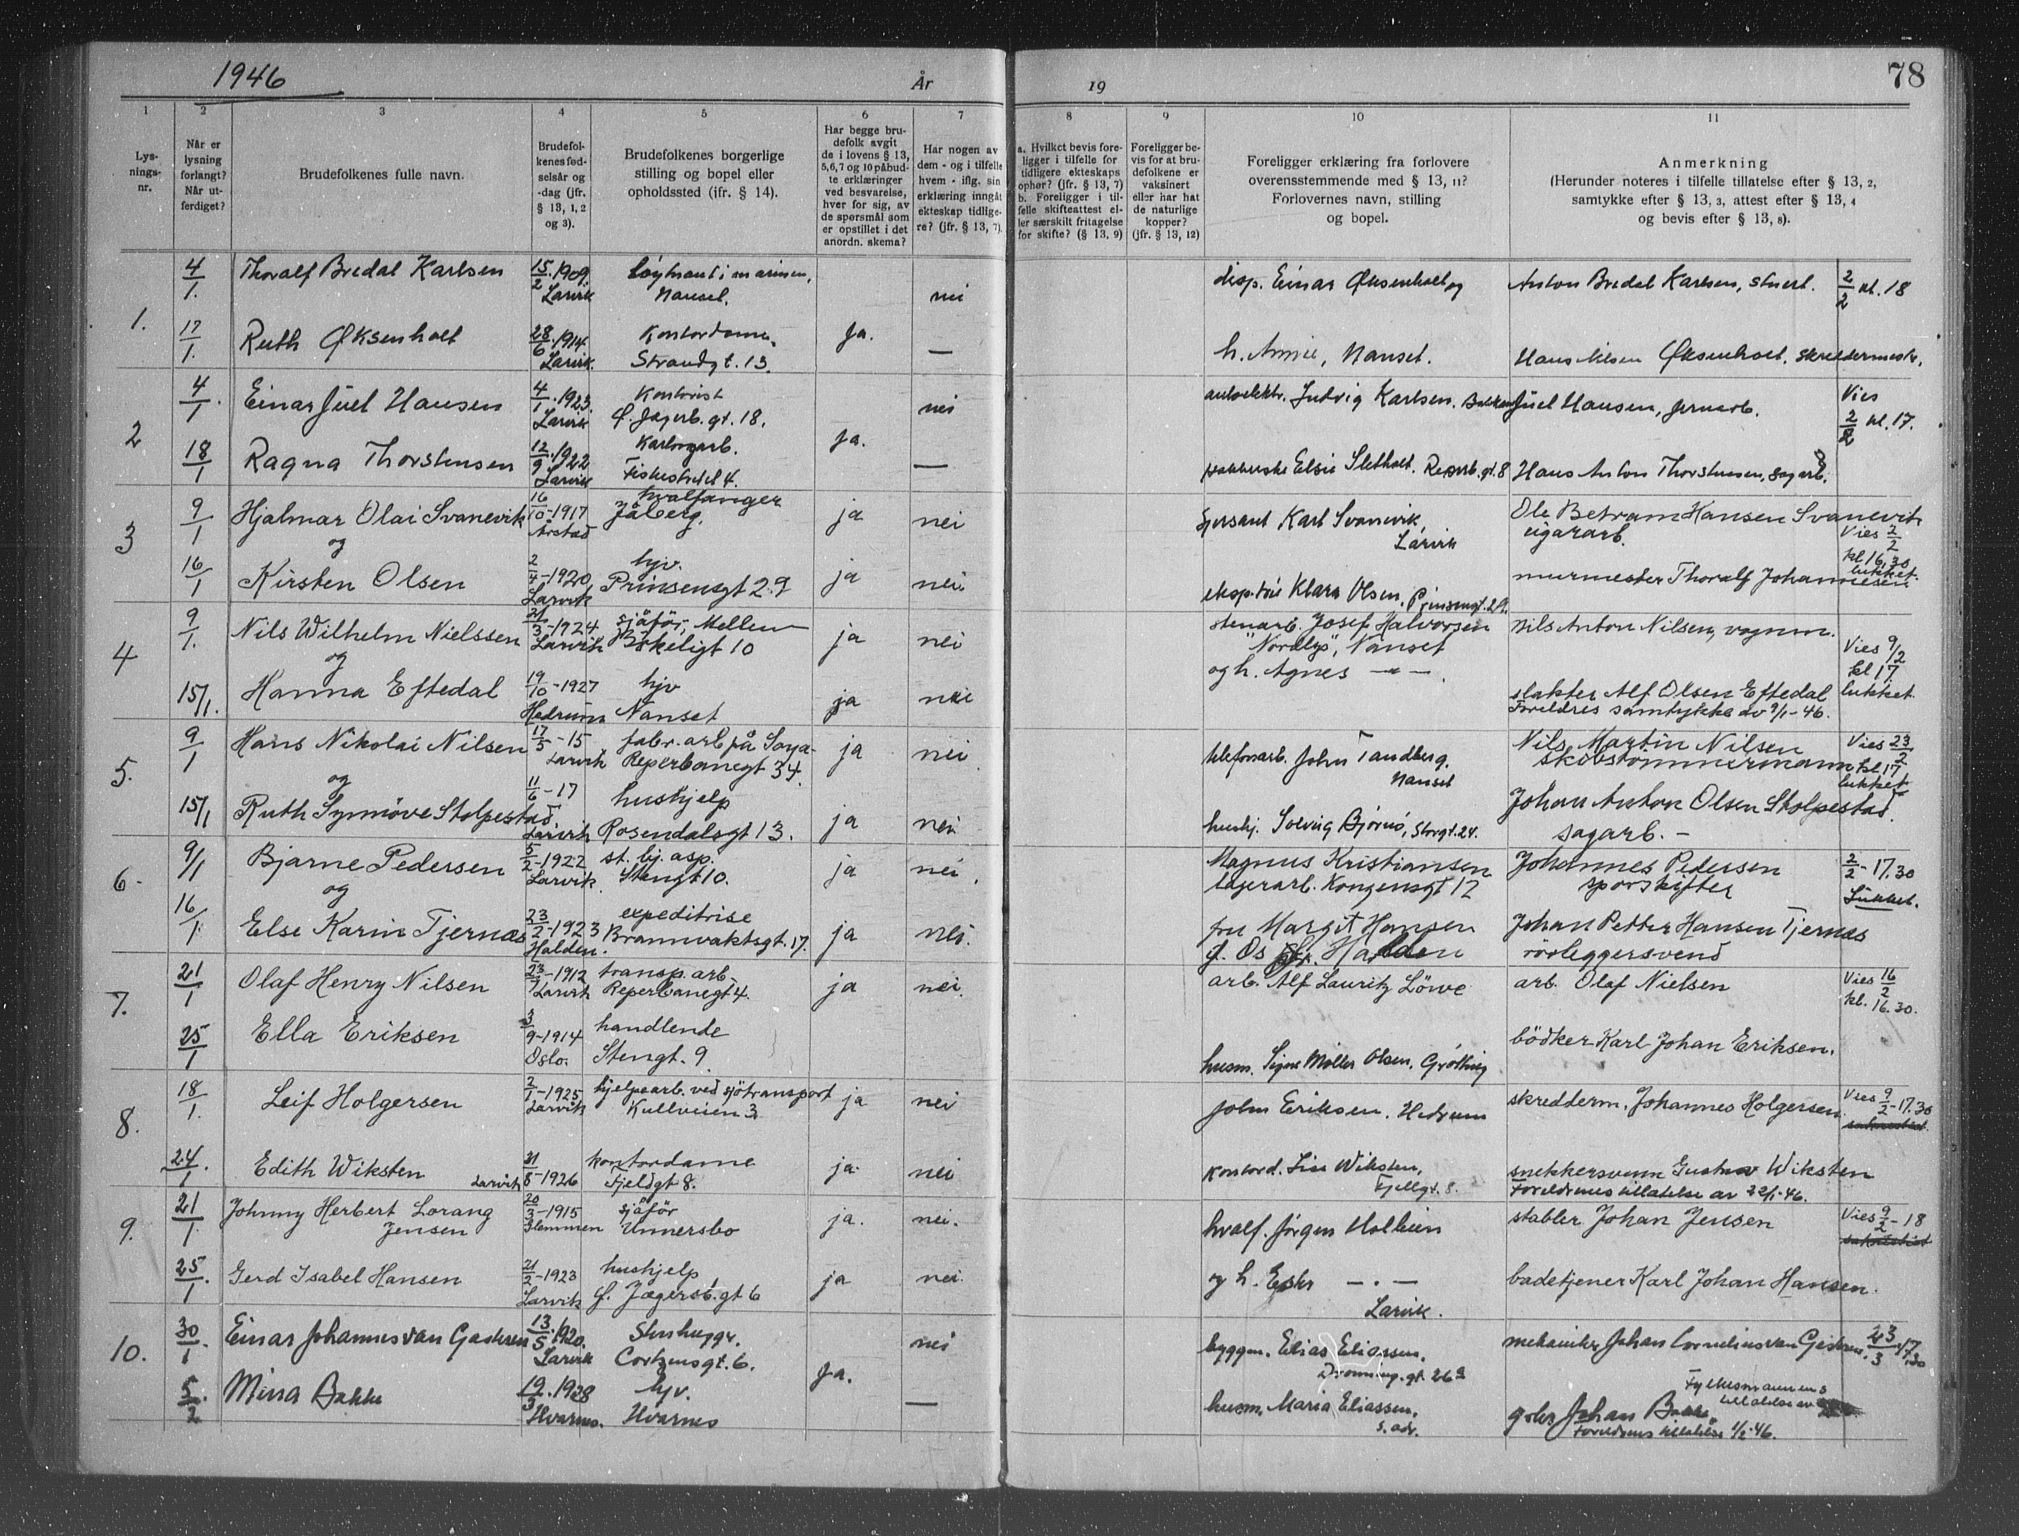 1946
År
19
78
1
2
3
4
5
6
7
8
9
10
11
Lys-
nings-
nr.
Når er
lysning
forlangt?
Når ut-
ferdiget?
Brudefolkenes fulle navn.
Brudefol-
kenes fød-
selsår og
-dag (jfr.
§ 13, 1, 2
og 3).
Brudefolkenes borgerlige
stilling og bopel eller
opholdssted (ifr. § 14).
Har begge bru-
defolk avgit
de i lovens § 13,
5,6,7 og 10 påbud-
te erklæringer
ved besvarelse,
hver for sig, av
de spørsmål som
er opstillet i det
anordn. skema?
Har nogen av
dem - og i tilfelle
hvem - iflg. sin
erklæring inngåt
ekteskap tidlige-
re? (jfr. § 13, 7).
a. Hvilket bevis fore-
ligger i tilfelle for
tidligere ekteskaps
ophør? (jfr. § 13, 7)
b. Foreligger i til-
felle skifteattest el-
ler særskilt fritagelse
for skifte? (§ 13, 9)
Foreligger be-
vis for at bru-
defolkene er
vaksinert
eller har hat
de naturlige
kopper?
(jfr. § 13, 12)
Foreligger erklæring fra forlovere
overensstemmende med § 13, 11?
Forlovernes navn, stilling
og bopel.
Anmerkning
(Herunder noteres i tilfelle tillatelse efter § 13, 2,
samtykke efter § 13, 3, attest efter § 13, 4
og bevis efter § 13, 8).
1.
4/1. Thoralf Bredal Karlsen 15/2.1909. Løytnant i marinen, nei disp. Einar Øksenholt og Anton Bredal Karlsen, stuert. 2/2 kl. 18
Larvik Nanset.
17/1. Ruth Øksenholt 28/6.1914 Kontordame, Ja. — h. Annie, Nanset. Hans Nilsen Øksenholt, skreddermestr.
Larvik. Strandgt. 13.
2
4/1. Einar Juel Hansen 4/1.1923. Kontorist nei autoelektr. Ludvig Karlsen. Juel Hansen, jernarb. Vies
Larvik Ø. Jegerb. gt. 18. 2/2 kl. 17.
18/1 Ragna Thorstensen 12/9.1922 Ja. — Elsie Sletholt. Reperb. gt. 8 Hans Anton Thorstensen, sagarb.
Larvik Fiskestredet 4.
3
9/1 Hjalmar Olai Svanevik 16/10-1917 hvalfanger ja nei Karl Svanevik, Ole Betram Hansen Svanevik
og Jåberg. Larvik sigararb. Vies 2/2
16/1 Kirsten Olsen 2/4-1920, hjv. ja nei Klara Olsen, Prinsengt. 29. murmester Thoralf Johannesen kl 16.30
Larvik Prinsensgt 29 lukket.
4
9/1. Nils Wilhelm Nielssen 21/3-1924 sjåfør, Mellem ja nei stenarb. Josef Halvorsen Nils Anton Nilsen, vognm. Vies 9/2
og Larvik Bøkeligt 10 "Nordlys", Nanset kl 17
15/1. Hanna Eftedal 19/10-1927 hjv ja nei og h. Agnes — " — . slakter Alf Olsen Eftedal lukket.
Hedrum Nanset Foreldres samtykke av 9/1-46.
5.
9/1 Hans Nikolai Nilsen 17/5-15 fabr. arb på Soya- ja nei telefonarb. John Tandberg. Nils Martin Nilsen Vies 23/2
og Larvik Reperbanegt 34. Nanset skibstømmermann kl 17
15/1 Ruth Synnøve Stolpestad. 11/6-17 hushjelp ja nei hushj. Solveig Bjørnø, Storgt. 24. Johan Anton Olsen Stolpestad. lukket
Larvik Rosendalsgt 13. sagarb. -
6-
9/1 Bjarne Pedersen 5/2-1922 st. bj. asp. ja nei Magnus Kristiansen Johannes Pedersen 2/2-17.30
og Larvik. Stengt 10. lagerarb. Kongensgt 12 sporskifter Lukket.
16/1 Else Karin Tjernæs 23/2-1923 expeditrise ja nei. fru Margit Hansen Johan Petter Hansen Tjernæs
Halden. Brannvaktsgt. 17. f. Os Halden rørleggersvend
7.
21/1 Olaf Henry Nilsen 23/1-1912 transp. arb- ja nei. arb. Alf Lauritz Löwe arb. Olaf Nielsen Vies 16/2
Larvik Reperbanegt 4. kl. 16.30.
25/1 Ella Eriksen 3/9-1914 handlende husm. Signe Møller Olsen, bödker Karl Johan Eriksen.
Oslo. Stengt. 9
8.
18/1. Leif Holgersen 2/1-1925, hjelpearb. ved sjötransport ja nei John Eriksen, Hedrum skredderm. Johannes Holgersen Vies 9/2-17.30
Larvik Kullveien 3
24/1. Edith Wiksten 31/8-1926 kontordame ja. nei kontord. Lise Wiksten, snekkersvenn Gustav Wiksten
Larvik Fjeldgt 8. Fjellgt. 8. Foreldrenes tillatelse av 22/1-46.
9.
21/1. Johnny Herbert Lorang 20/3-1915 sjåför ja. nei. hvalf. Jørgen Holbein stabler Johan Jensen Vies 9/2-18
Jensen Glemmen Unnersbo
25/1. Gerd Isabel Hansen 21/2-1923 hushjelp ja nei. og h. — . — badetjener Karl Johan Hansen.
Larvik Ø. Jægersb. gt 6 Larvik.
10.
30/1. Einar Johannes van Gashren 13/5.1920. Stenhugger nei byggm. Elias Eliassen, mekaniker Johan Cornelius van 23/3 17.30
Larvik Cortzensgt. 6. Ja. Dronning. gt. 26a
5/2. Mina Bakke 19/3.1928 hjv. — husm. Maria Eliassen, Fylkesmannens
Hvarnes. Hvarnes s. adr. tillatelse av
Johan Bakke
Foreldrenes tillatelse 1/2-46.